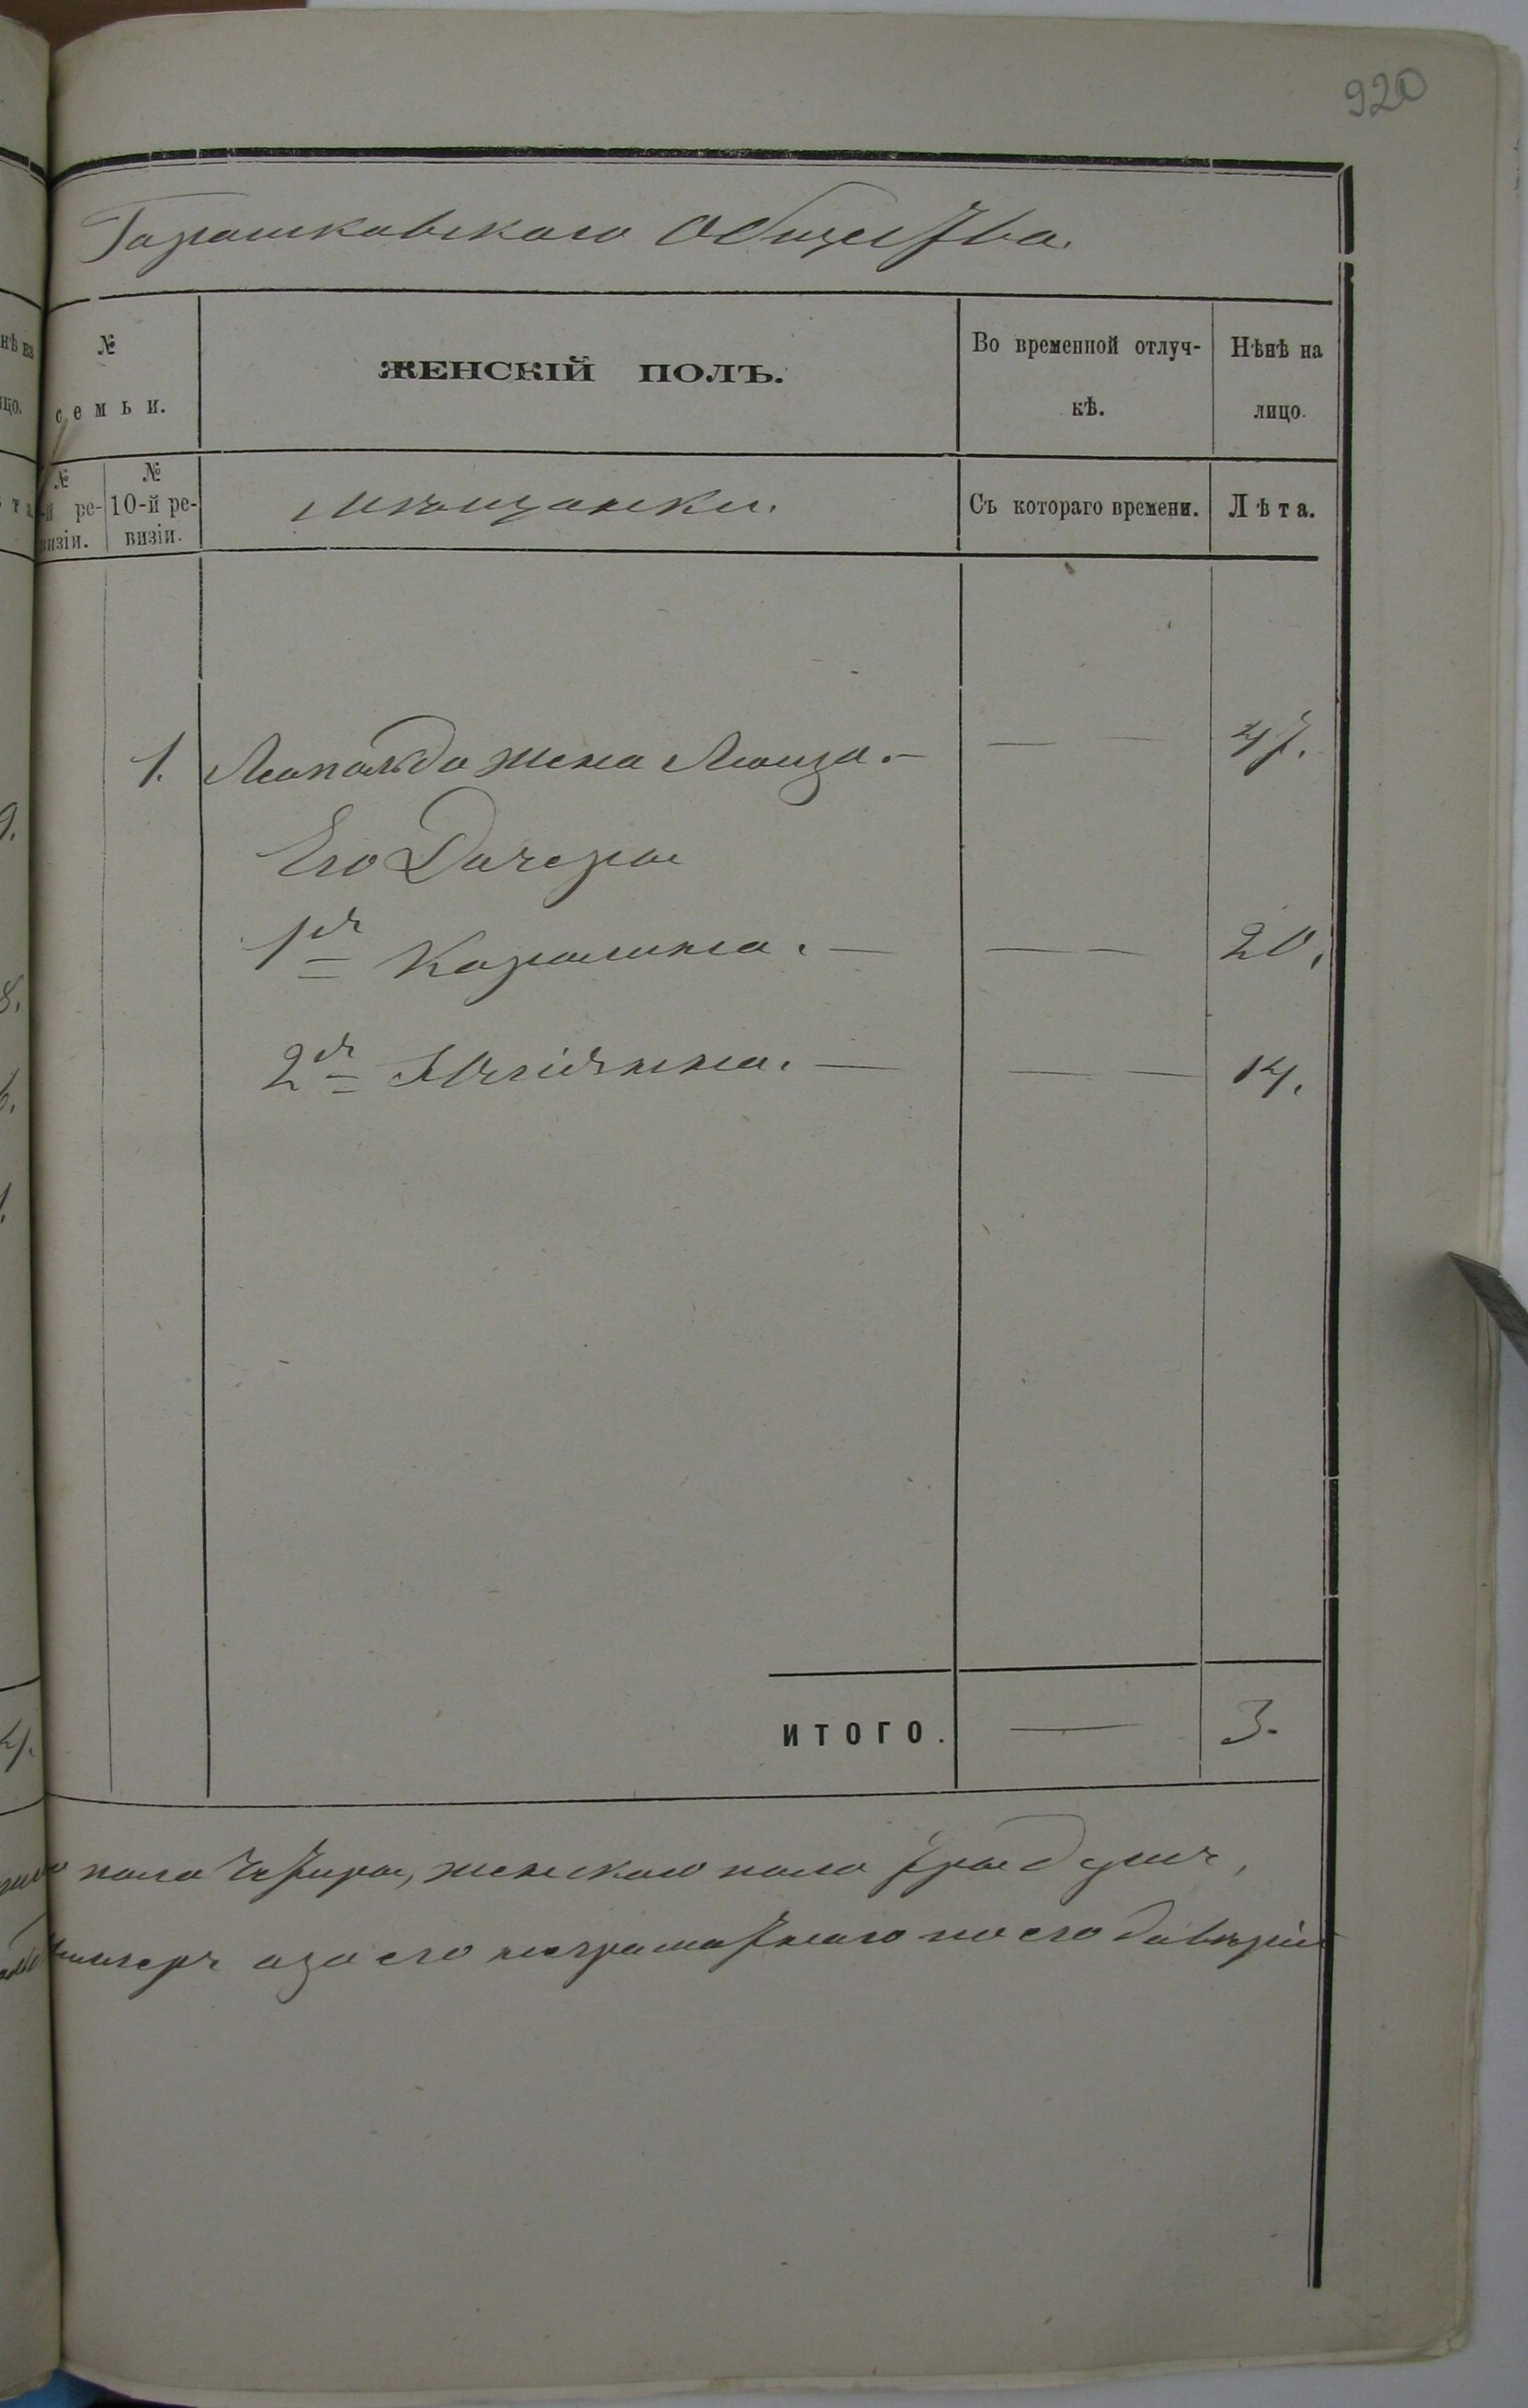 920
Горошковскаго Общества.
№
семьи.
ЖЕНСКІЙ ПОЛЪ.
Во временной отлуч-
кѣ.
Нѣнѣ на
лицо.
№
-й ре-
визіи.
№
10-й ре-
визіи.
мѣщанки.
Съ котораго времени.
Лѣта.
1. Леопольда жена Луиза. — — — 47.
Его Дочеры
1я Каролина. — — — 20.
2я — — — 14.
ИТОГО. — 3.
пола Четыре, женскаго пола три душъ,
а за его неграматнаго по его довѣрію